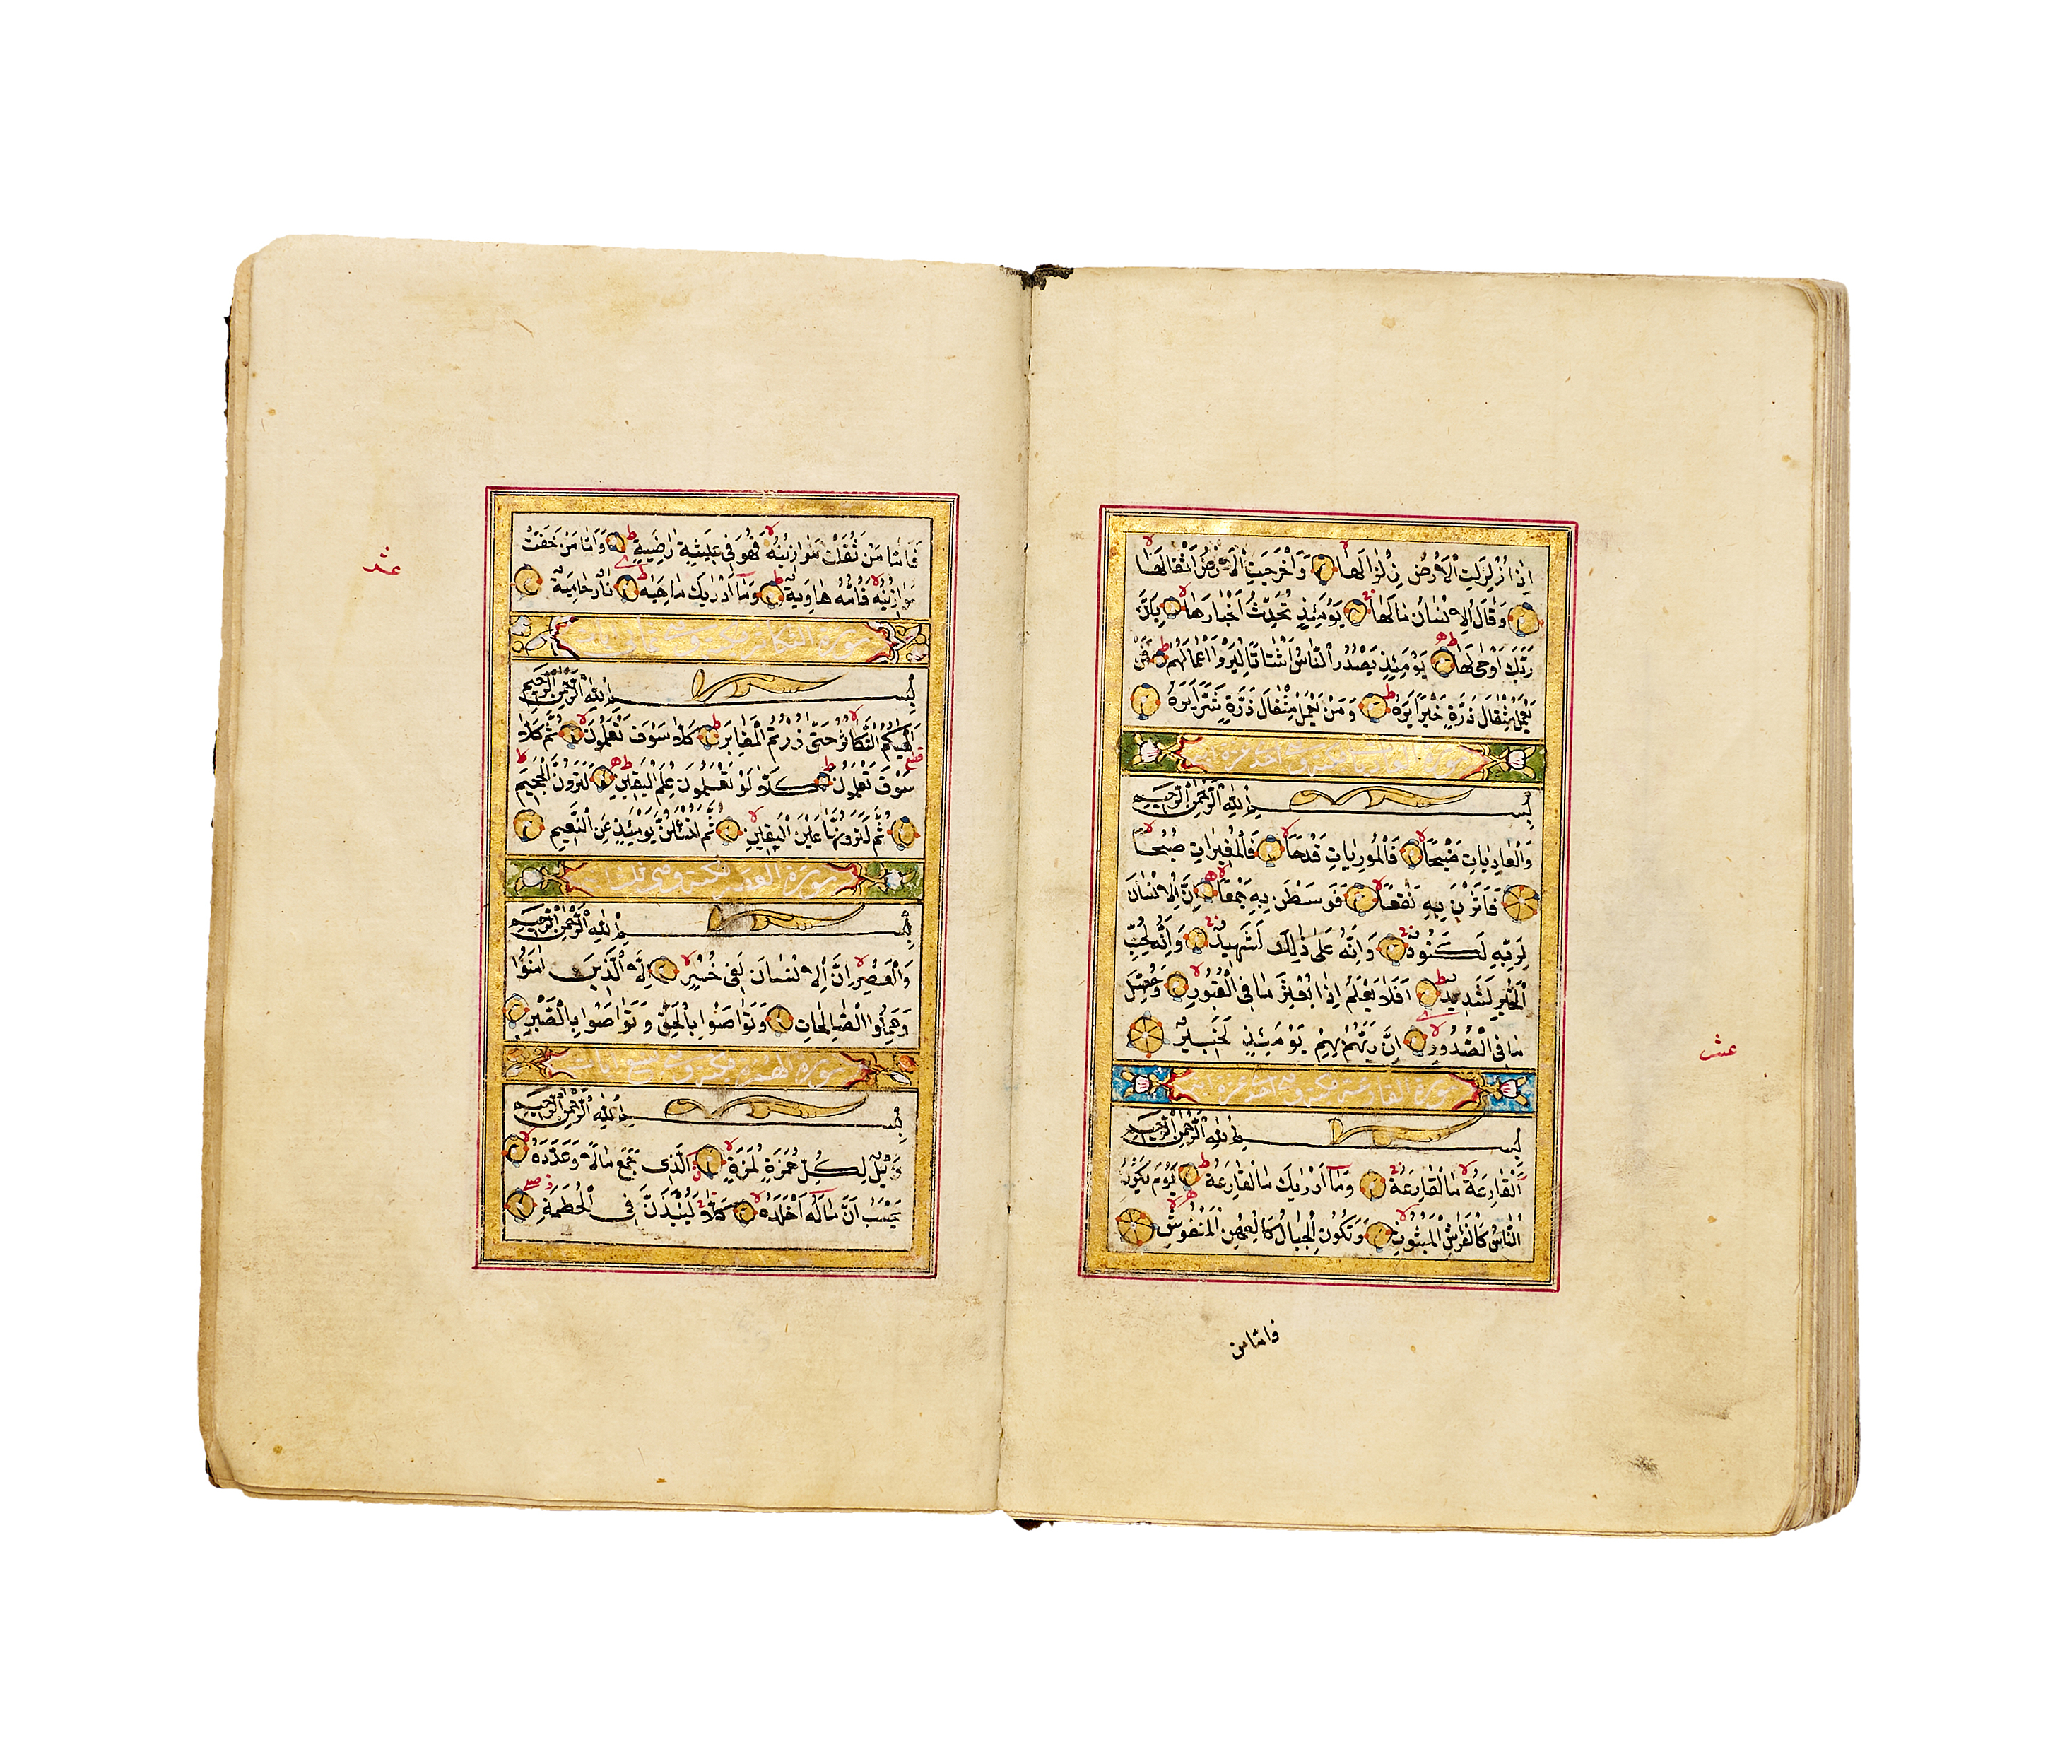 اِذَا زُلْزِلَتِ الْاَرْضُ زِلْزَالَهَا وَاَخْرَجَتِ الْاَرْضُ اَثْقَالَهَا
وَقَالَ الْاِنْسَانُ مَالَهَا يَوْمَئِذٍ تُحَدِّثُ اَخْبَارَهَا بِاَنَّ
رَبَّكَ اَوْحٰى لَهَا يَوْمَئِذٍ يَصْدُرُ النَّاسُ اَشْتَاتًا لِيُرَوْا اَعْمَالَهُمْ فَمَنْ
يَعْمَلْ مِثْقَالَ ذَرَّةٍ خَيْرًا يَرَهُ وَمَنْ يَعْمَلْ مِثْقَالَ ذَرَّةٍ شَرًّا يَرَهُ
سورة العاديات مكية وهى احدى عشرة اية
بِسْمِ اللّٰهِ الرَّحْمٰنِ الرَّحِيمِ
وَالْعَادِيَاتِ ضَبْحًا فَالْمُورِيَاتِ قَدْحًا فَالْمُغِيرَاتِ صُبْحًا
فَاَثَرْنَ بِهِ نَقْعًا فَوَسَطْنَ بِهِ جَمْعًا اِنَّ الْاِنْسَانَ
لِرَبِّهِ لَكَنُودٌ وَاِنَّهُ عَلٰى ذٰلِكَ لَشَهِيدٌ وَاِنَّهُ لِحُبِّ
الْخَيْرِ لَشَدِيدٌ اَفَلَا يَعْلَمُ اِذَا بُعْثِرَ مَا فِى الْقُبُورِ وَحُصِّلَ
مَا فِى الصُّدُورِ اِنَّ رَبَّهُمْ بِهِمْ يَوْمَئِذٍ لَخَبِيرٌ
عشر
سورة القارعة مكية وهى احدى عشرة اية
بِسْمِ اللّٰهِ الرَّحْمٰنِ الرَّحِيمِ
اَلْقَارِعَةُ مَا الْقَارِعَةُ وَمَا اَدْرٰيكَ مَا الْقَارِعَةُ يَوْمَ يَكُونُ
النَّاسُ كَالْفَرَاشِ الْمَبْثُوثِ وَتَكُونُ الْجِبَالُ كَالْعِهْنِ الْمَنْفُوشِ
فاما من
فَاَمَّا مَنْ ثَقُلَتْ مَوَازِينُهُ فَهُوَ فِى عِيشَةٍ رَاضِيَةٍ وَاَمَّا مَنْ خَفَّتْ
عشر
مَوَازِينُهُ فَاُمُّهُ هَاوِيَةٌ وَمَا اَدْرٰيكَ مَاهِيَهْ نَارٌ حَامِيَةٌ
سورة التكاثر
بِسْمِ اللّٰهِ الرَّحْمٰنِ الرَّحِيمِ
اَلْهٰيكُمُ التَّكَاثُرُ حَتّٰى زُرْتُمُ الْمَقَابِرَ كَلَّا سَوْفَ تَعْلَمُونَ ثُمَّ كَلَّا
سَوْفَ تَعْلَمُونَ كَلَّا لَوْ تَعْلَمُونَ عِلْمَ الْيَقِينِ لَتَرَوُنَّ الْجَحِيمَ
ثُمَّ لَتَرَوُنَّهَا عَيْنَ الْيَقِينِ ثُمَّ لَتُسْئَلُنَّ يَوْمَئِذٍ عَنِ النَّعِيمِ
سورة العصر مكية وهى ثلث
بِسْمِ اللّٰهِ الرَّحْمٰنِ الرَّحِيمِ
وَالْعَصْرِ اِنَّ الْاِنْسَانَ لَفِى خُسْرٍ اِلَّا الَّذِينَ اٰمَنُوا
وَعَمِلُوا الصَّالِحَاتِ وَتَوَاصَوْا بِالْحَقِّ وَتَوَاصَوْا بِالصَّبْرِ
سورة الهمزة مكية وهى تسع ايات
بِسْمِ اللّٰهِ الرَّحْمٰنِ الرَّحِيمِ
وَيْلٌ لِكُلِّ هُمَزَةٍ لُمَزَةٍ اَلَّذِى جَمَعَ مَالًا وَعَدَّدَهُ
يَحْسَبُ اَنَّ مَالَهُ اَخْلَدَهُ كَلَّا لَيُنْبَذَنَّ فِى الْحُطَمَةِ